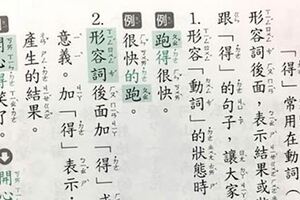 「得」常用在動詞（
形容詞後面，表示結果或
跟「得」的句子，讓大家
1.形容「動詞」的狀態時
例 跑得很快。
例 很快的跑。
2.形容詞後面加「得」
意義。加「得」表示，
產生的結果。
開心得笑了。開心